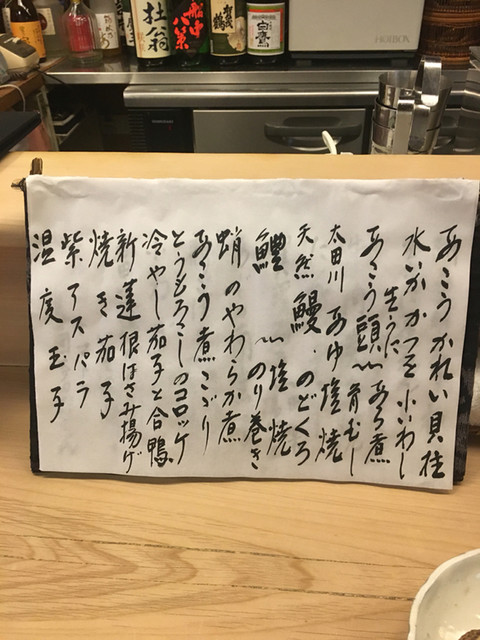 あこう かれい 貝柱
水いか かつを 小いわし
生うに
あこう 頭〜あら煮
骨むし
太田川 あゆ塩焼
天然鰻 のどくろ
鱧〜塩焼
のり巻き
蛸のやわらか煮
あこう煮こごり
とうもろこしのコロッケ
冷やし茄子と合鴨
新蓮根はさみ揚げ
焼き茄子
紫アスパラ
温度玉子
杜翁
船中八策
賀茂鶴
白鷹
HOSHIZAKI